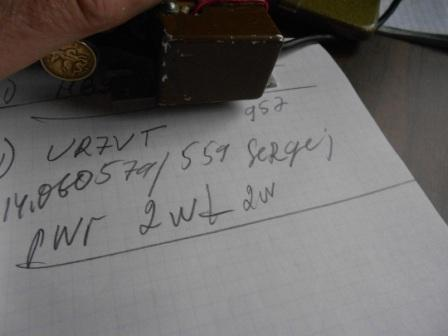 957
1) UR7VT
14.060 579/559 Sergej
PWR 2wt 2w